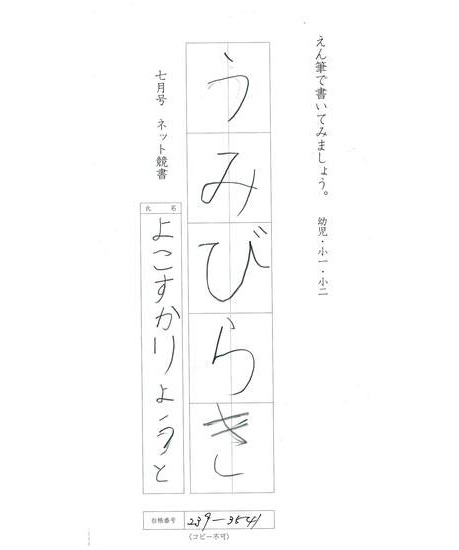 えん筆で書いてみましょう。 幼児・小一・小二
うみびらき
七月号 ネット競書
氏名
よこすかりょうと
台帳番号 239-3541
(コピー不可)